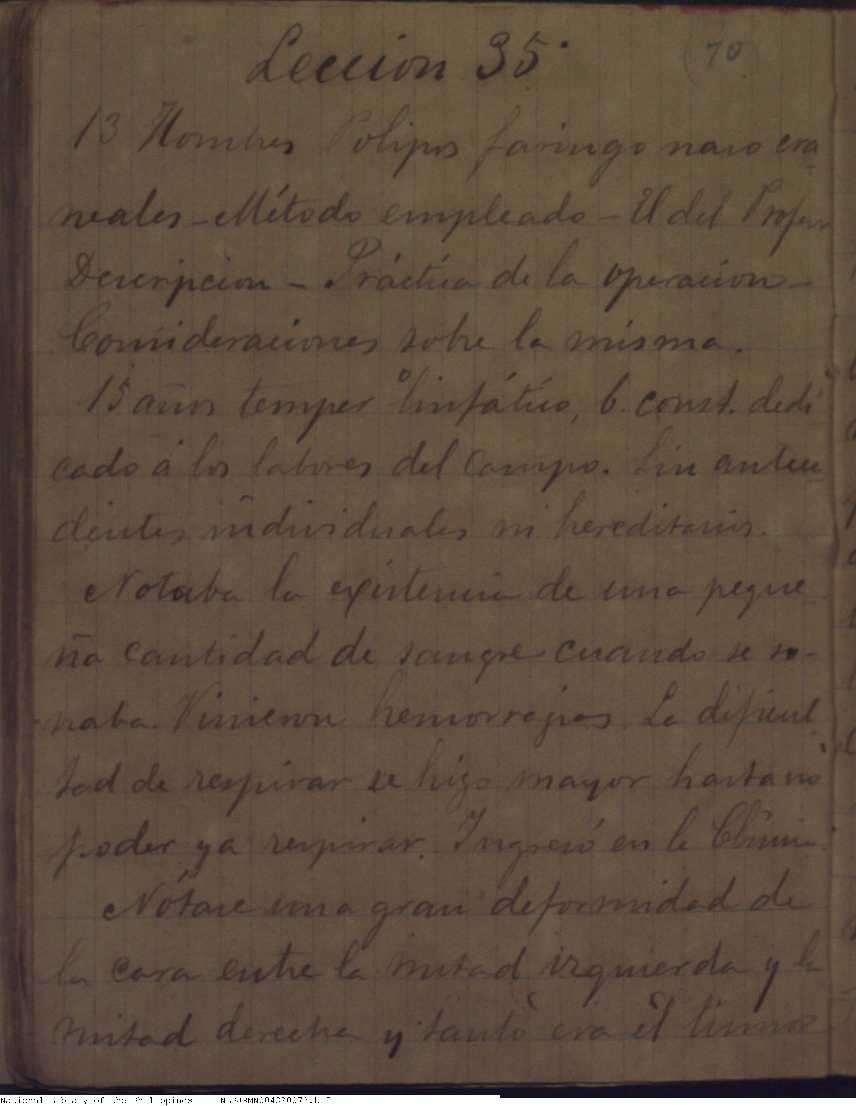 Leccion 35.
(70)
13 Hombres Polipos faringo naso cra-
neales - Método empleado - El del Profesor
Descripcion - Práctica de la operacion -
Consideraciones sobre la misma.
15 años temper.º linfático, b. const. dedi
cado á los labores del campo. Sin antece
dentes individuales ni hereditarios.
Notaba la existencia de una peque-
ña cantidad de sangre cuando se so-
naba. Vinieron hemorragias. La dificul
tad de respirar se hizo mayor hasta no
poder ya respirar. Ingresó en la Clínica.
Nótase una gran deformidad de
la cara entre la mitad izquierda y la
mitad derecha y tanto era el tumor
National Library of the Philippines